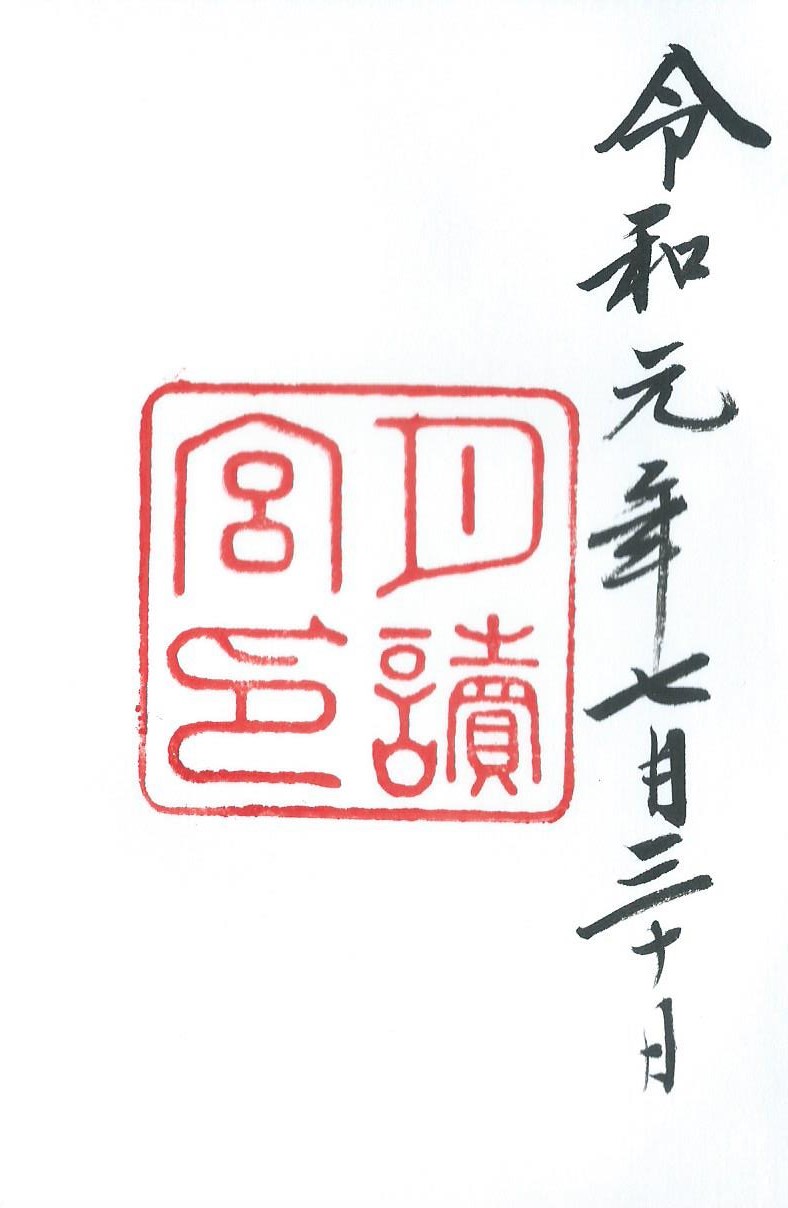 令和元年七月三十日
月讀
宮印